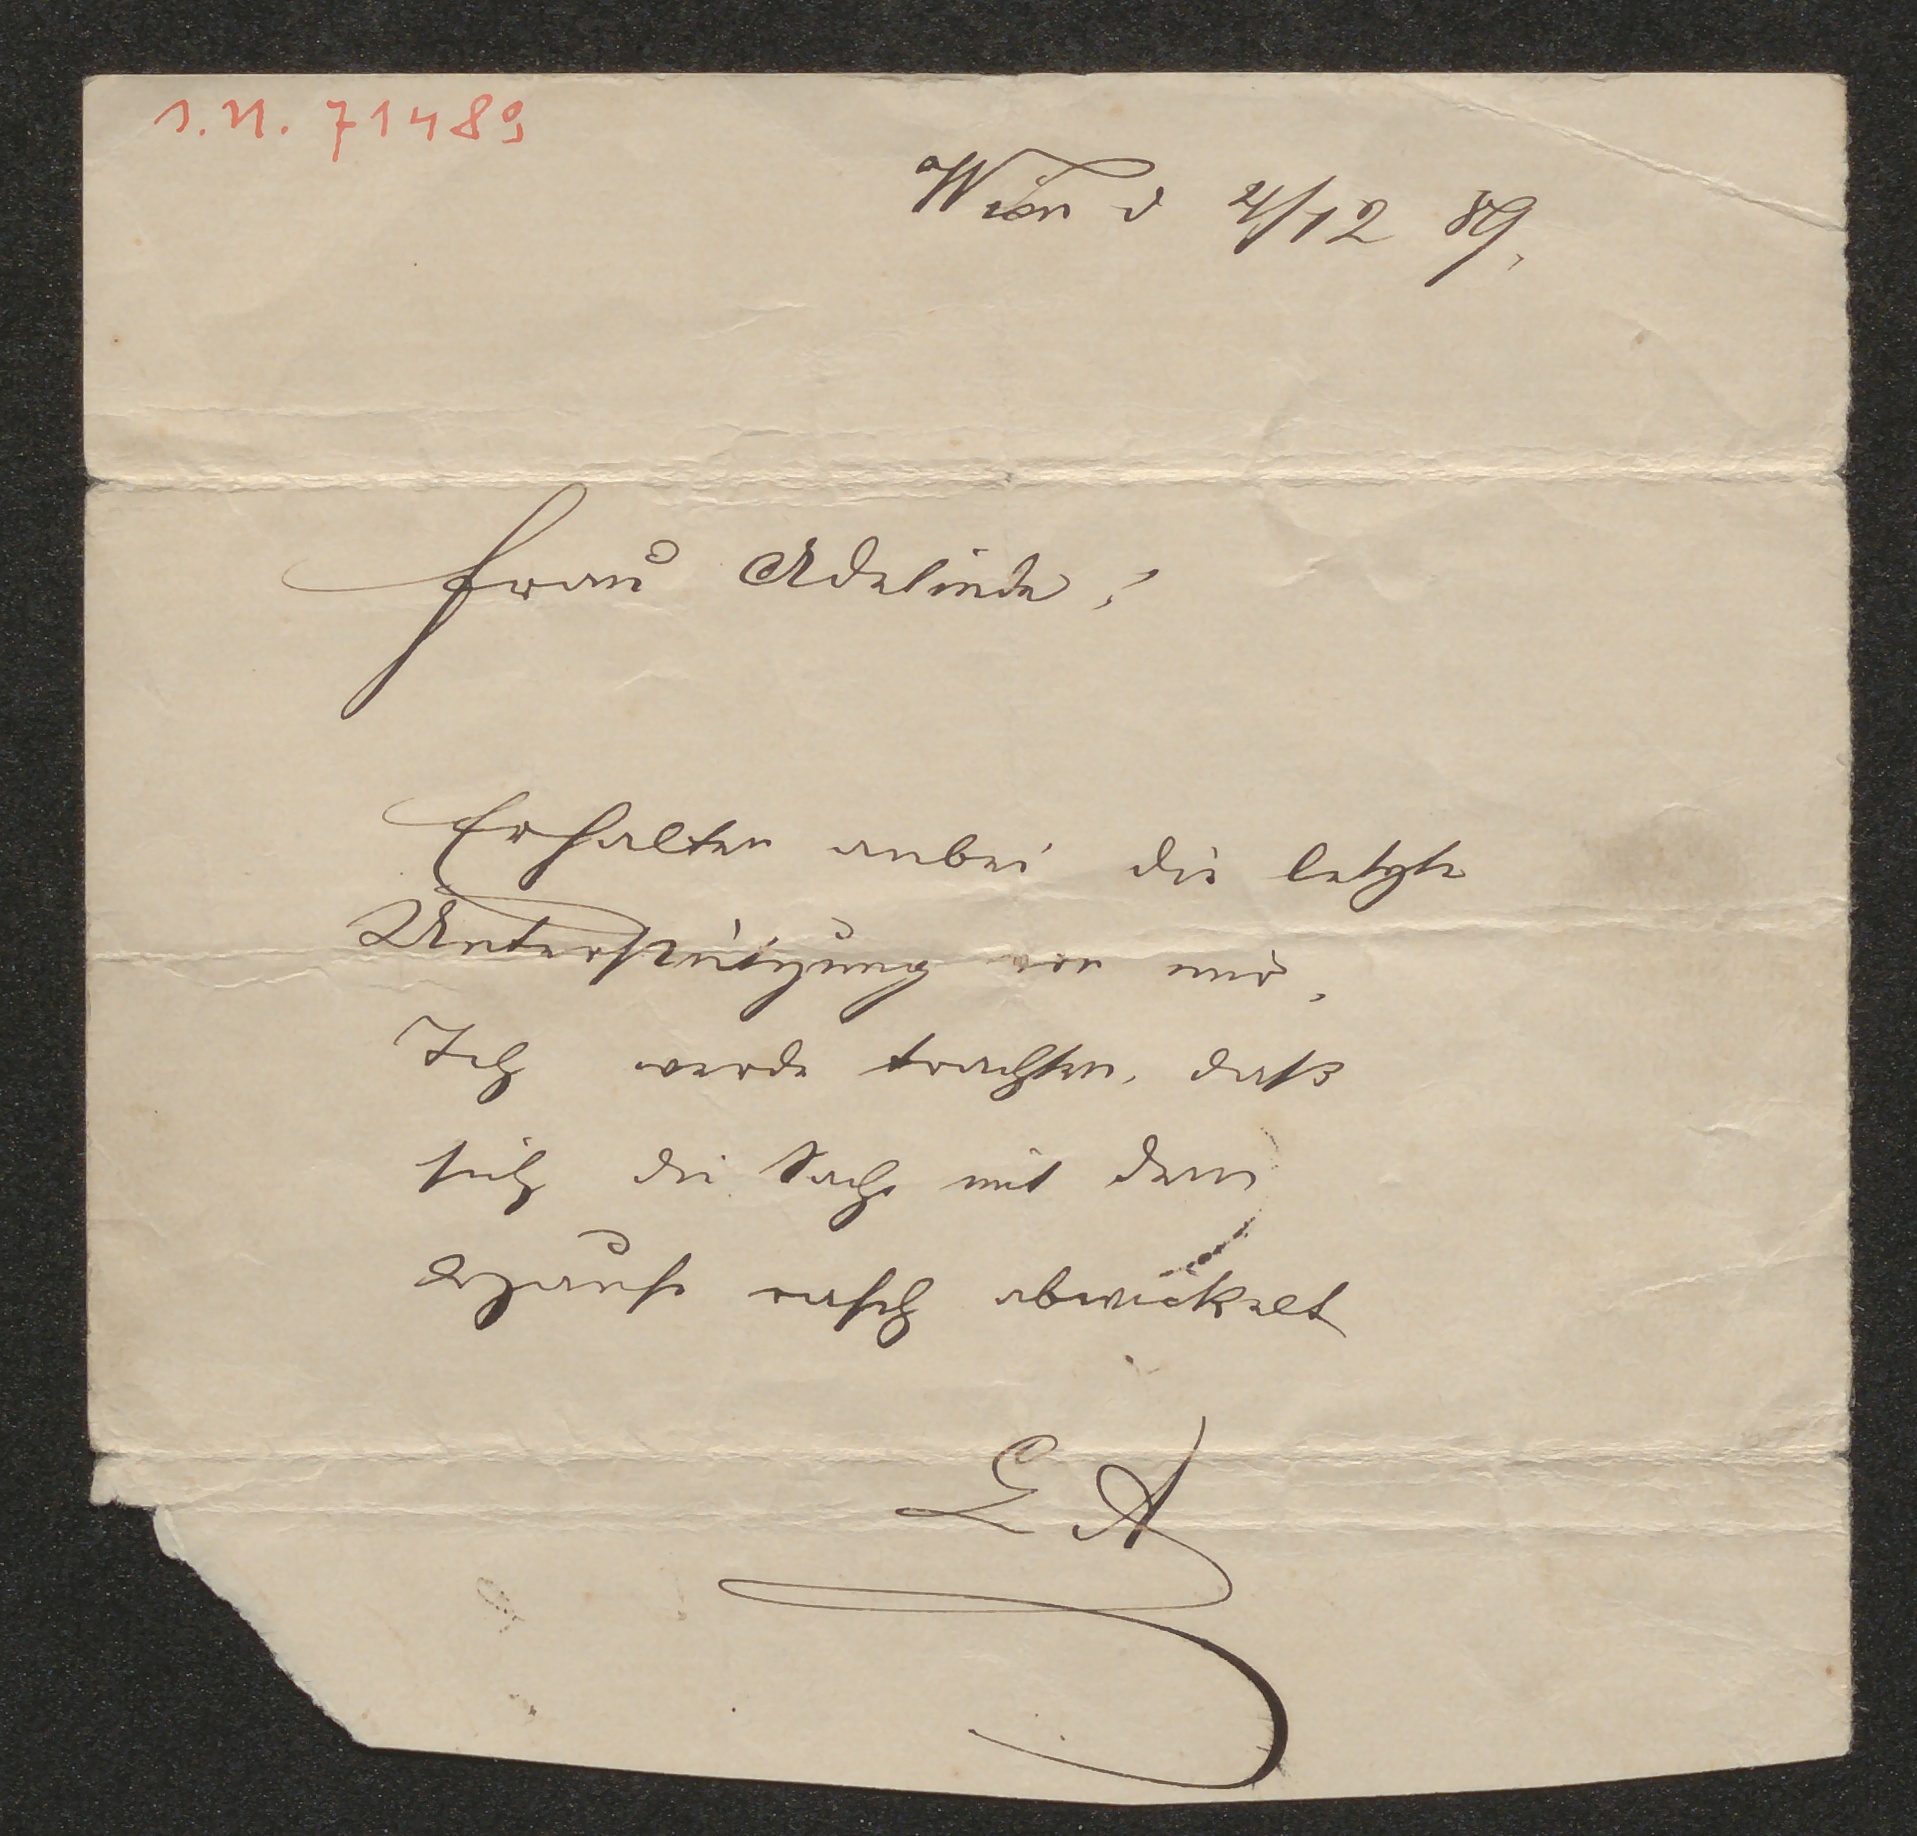 I.N. 71489
Wien d 2/12 89.
Frau Adelinde!
Erhalten anbei die letzte
Unterstützung von mir.
Ich werde trachten, daß
sich die Sache mit dem
Hause rasch abwickelt
L A